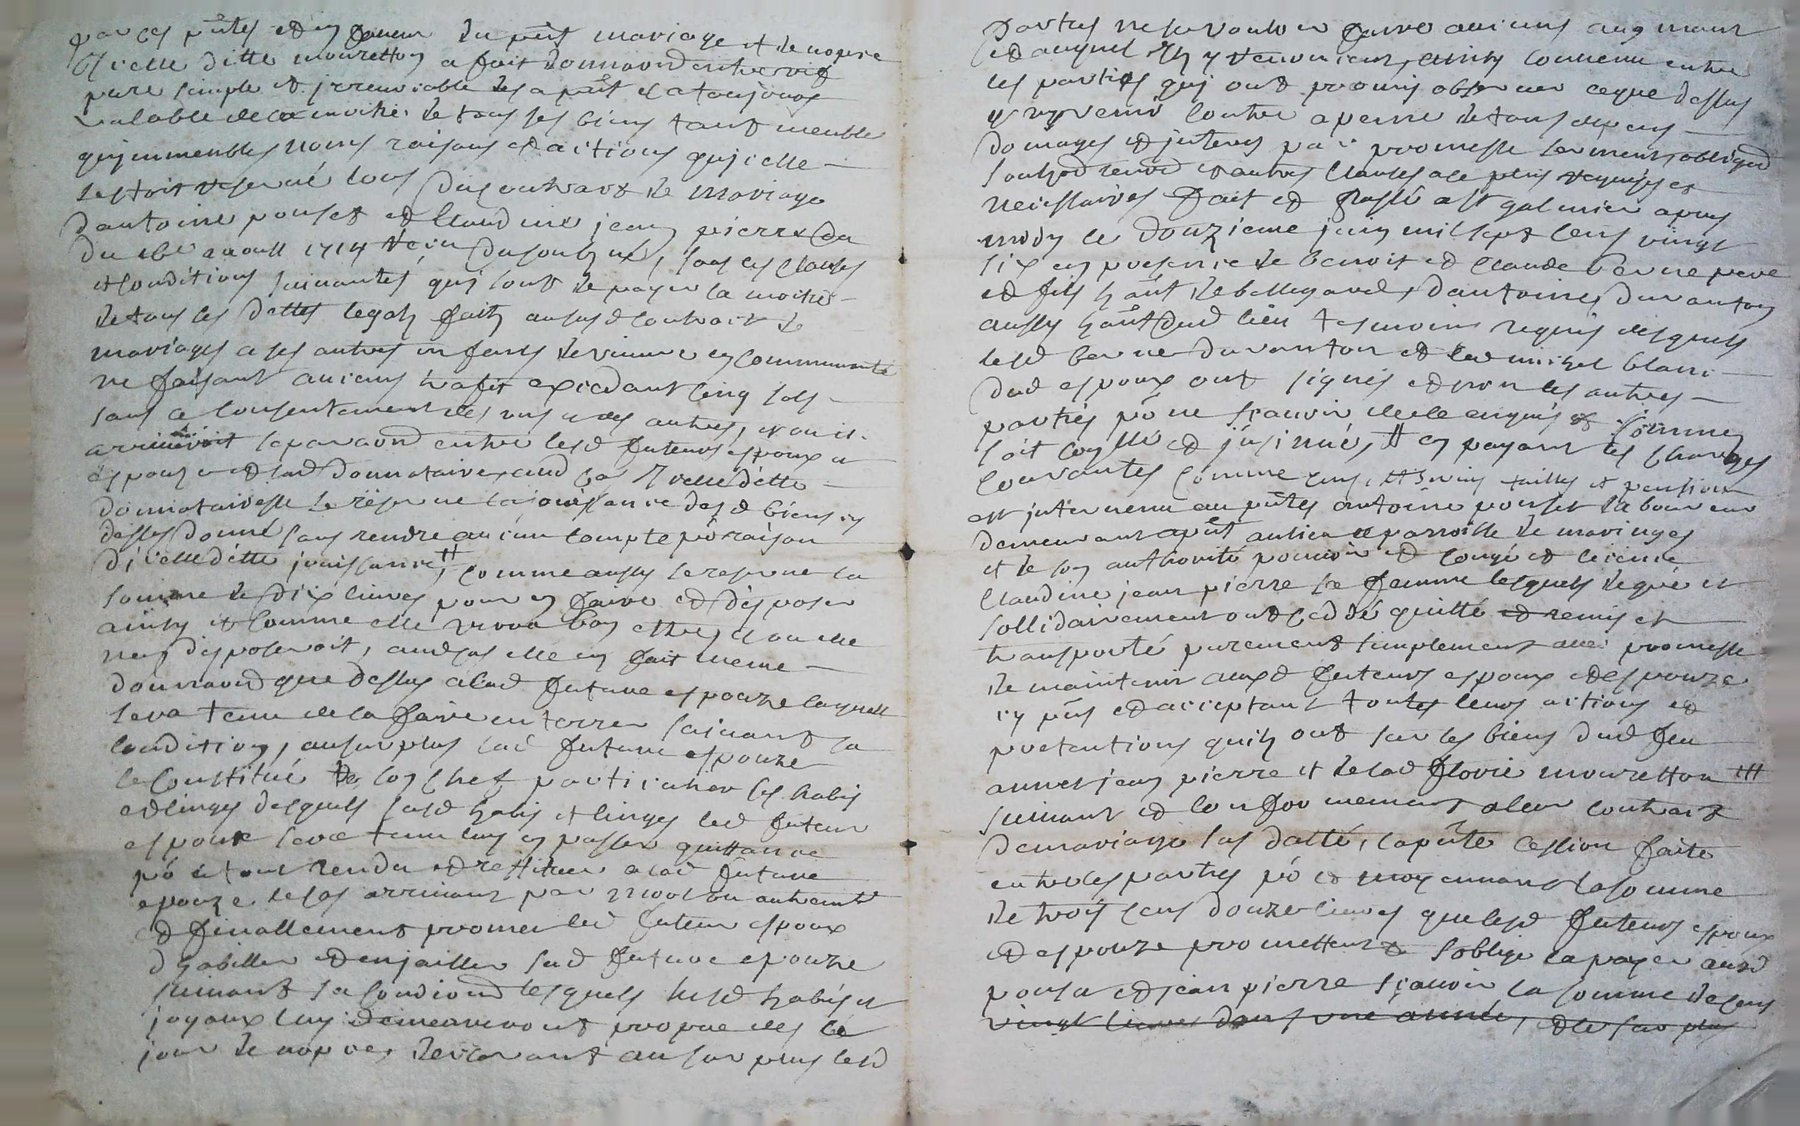 par ces pntes et en faveur du pnt mariage et de nopce
Icelle ditte mouretton a fait donnaon entre vifs
pure simple et irrevocable des a pnt et a toujours
valable de la moitié de tous ses biens tant meubles
qu'immeubles noms raisons et actions qu'icelle
sestoit reservé lors du contrat de mariage
d'antoine ponset et Claudine jean pierre
du aoust 1714 receu du soubzne, sous les clauses
et conditions suivantes qui sont de payer la moitié
de tous les dettes legats faits au susd contrait de
mariages a ses autres enfants de vivre en communauté
ne faisant aucuns trafit exceddant cinq sols
sans le consentement des uns et des autres, et ou il
arriveroit separaond entre lesd futeurs espoux et
espouze et lad donnataire, aud cas Icelle ditte
donnataresse se reserve la jouissance desd biens cy
dessus donné sans rendre aucun compte po raison
d'icelle ditte jouissance, comme aussy se reserve la
somme de dix livres pour en faire et disposer
ainsy et comme elle verra bon estre, et ou elle
nen disposeroit, audcas elle en fait meme
donnaond que dessus a lad future espouze laquelle
sera tenu de la faire enterrer suivant sa
condition, au surplus lad future espouze
se constitue de son chef particulier ses habis
et linges desquels susd habis et linges led futeur
espoux sera tenu luy en passer quittance
po le tout rendre et restituer a lad future
epouze le cas arrivant par mort ou autremt
et finallement promet led futeur espoux
d'habiller et enjailler sad future epouze
suivant sa condiond lesquels susd habis et
joyaux luy demeureront propre des le
jour de nopces declarant au surplus lesd
parties ne se vouloir faire aucuns augment
et auquel ils y renoncient, ainsy convenu entre
les parties qui ont promis observer ce que dessus
ny venir contre a peine de tous depens
domages et interets par promesse serment, obligaond
soubzd renon et autres clauses a ce plus requises et
necessaires fait et passé a st galmier apres
midy le douzieme juin mil sept cens vingt
six en presence de benoit et Claude berne pere
et fils hants de bellegarde, d'antoine duranton
aussy hant dud lieu tesmoins requis desquels
lesd berne duranton et led michel blanc
dud espoux ont signés et non les autres
parties po ne sçavoir de ce enquis et sommés
soit coxllé et insinué, # en payant les charges
courantes comme cens, et servis tailles et pension
est intervenu au pntes antoine ponset laboureur
demeurant au lieu et parroisse de maringes
et de son authorité pouvoir et congé et licence
Claudine jean pierre sa femme lesquels de gré et
sollidairement ont ceddé quitté et remis et
transporté purement simplement avec promesse
de maintenir auxd futeurs espoux et espouze
cy pnts et acceptant toutes leurs actions et
pretentions quils ont sur les biens dud feu
annet jean pierre et de lad florie mouretton ###
suivant et conformement a leur contrait
de mariage sus datté, la pnte cession faite
entre les parties po et moyennant la somme
de trois cens douze livres que lesd futeurs espoux
et espouze promettent et s'oblige la payer ausd
ponset et jean pierre sçavoir la somme de cens
vingt livres dans une année, et le surplus